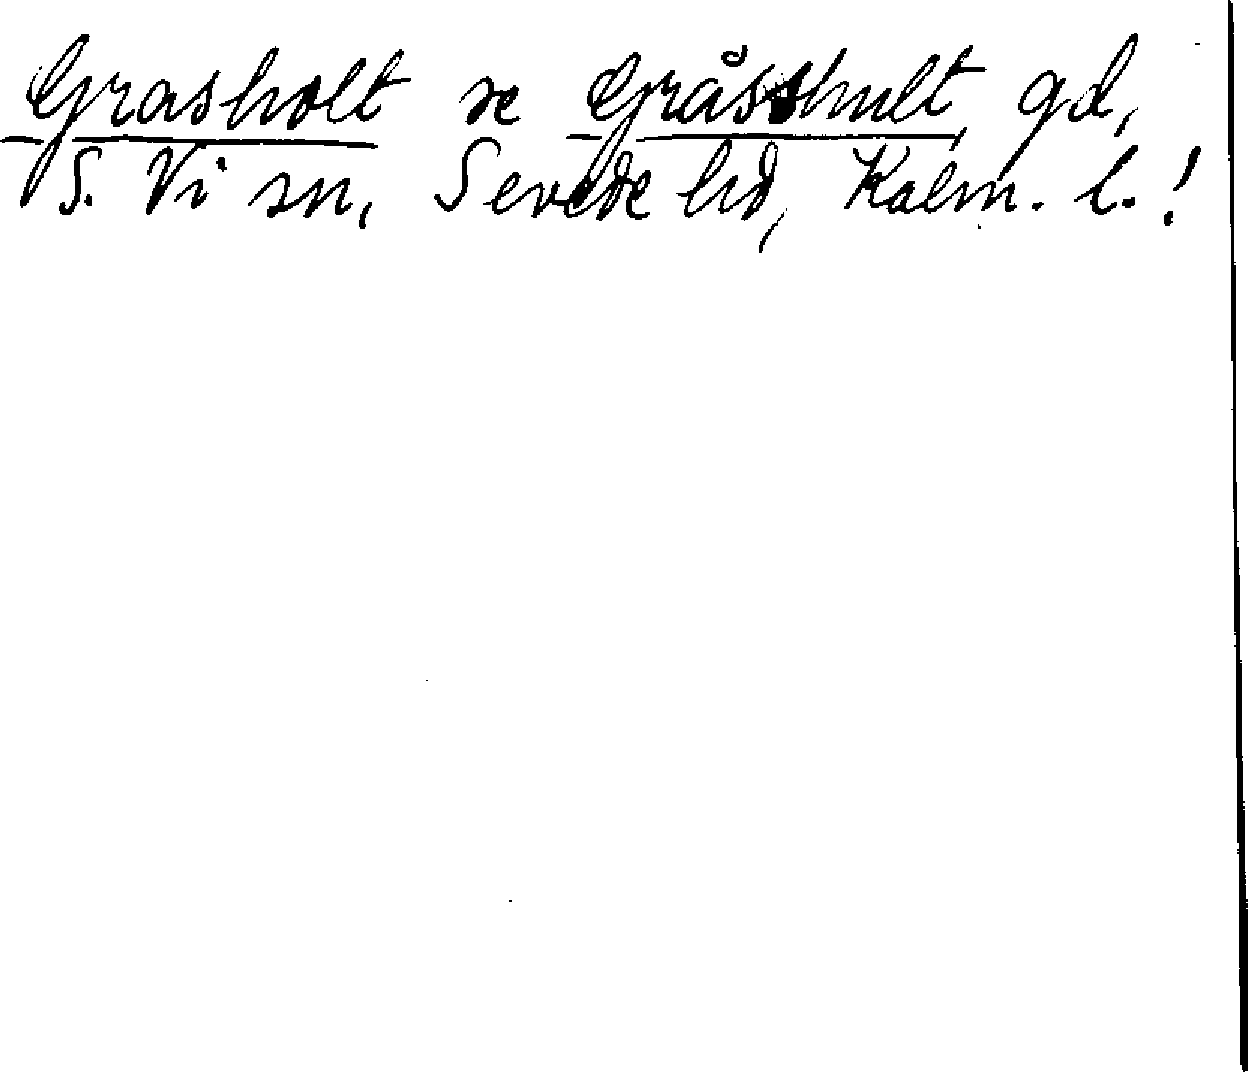 Grasholt se Gråsshult, gd,
S. Vi sn, Sevede hd, Kalm. l.!